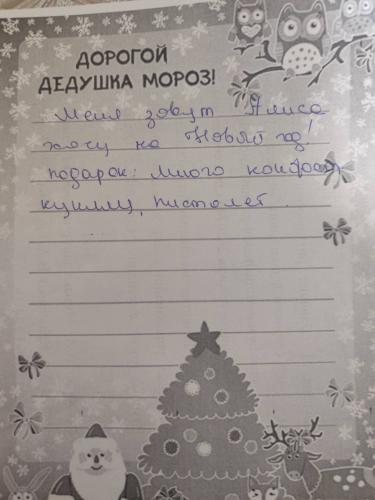 ДОРОГОЙ
ДЕДУШКА МОРОЗ!
Меня зовут Алиса
хочу на Новый год!
подарок: много конфет,
куклу, пистолет.